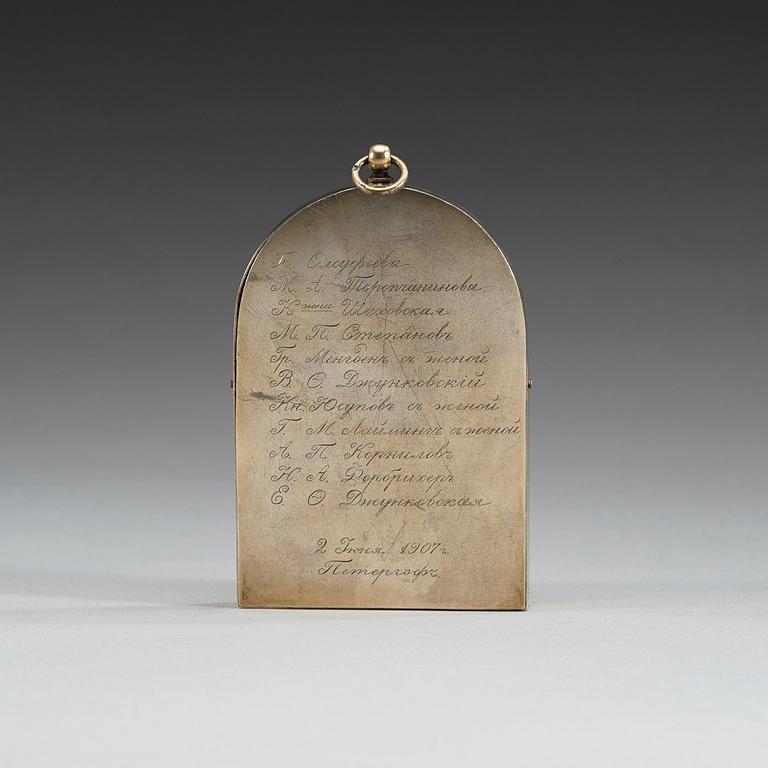 Гр. Олсуфьевы
М. А. Торопчанинова
Кжна Шаховская
М. П. Степановъ
Гр. Менгденъ съ женой
В. Ѳ. Джунковскій
Кн. Юсуповъ съ женой
Г. М. Лаймингъ съ женой
А. П. Корниловъ
Н. А. Форбрихеръ
Е. Ѳ. Джунковская
2 Іюня 1907 г.
Петергофъ.